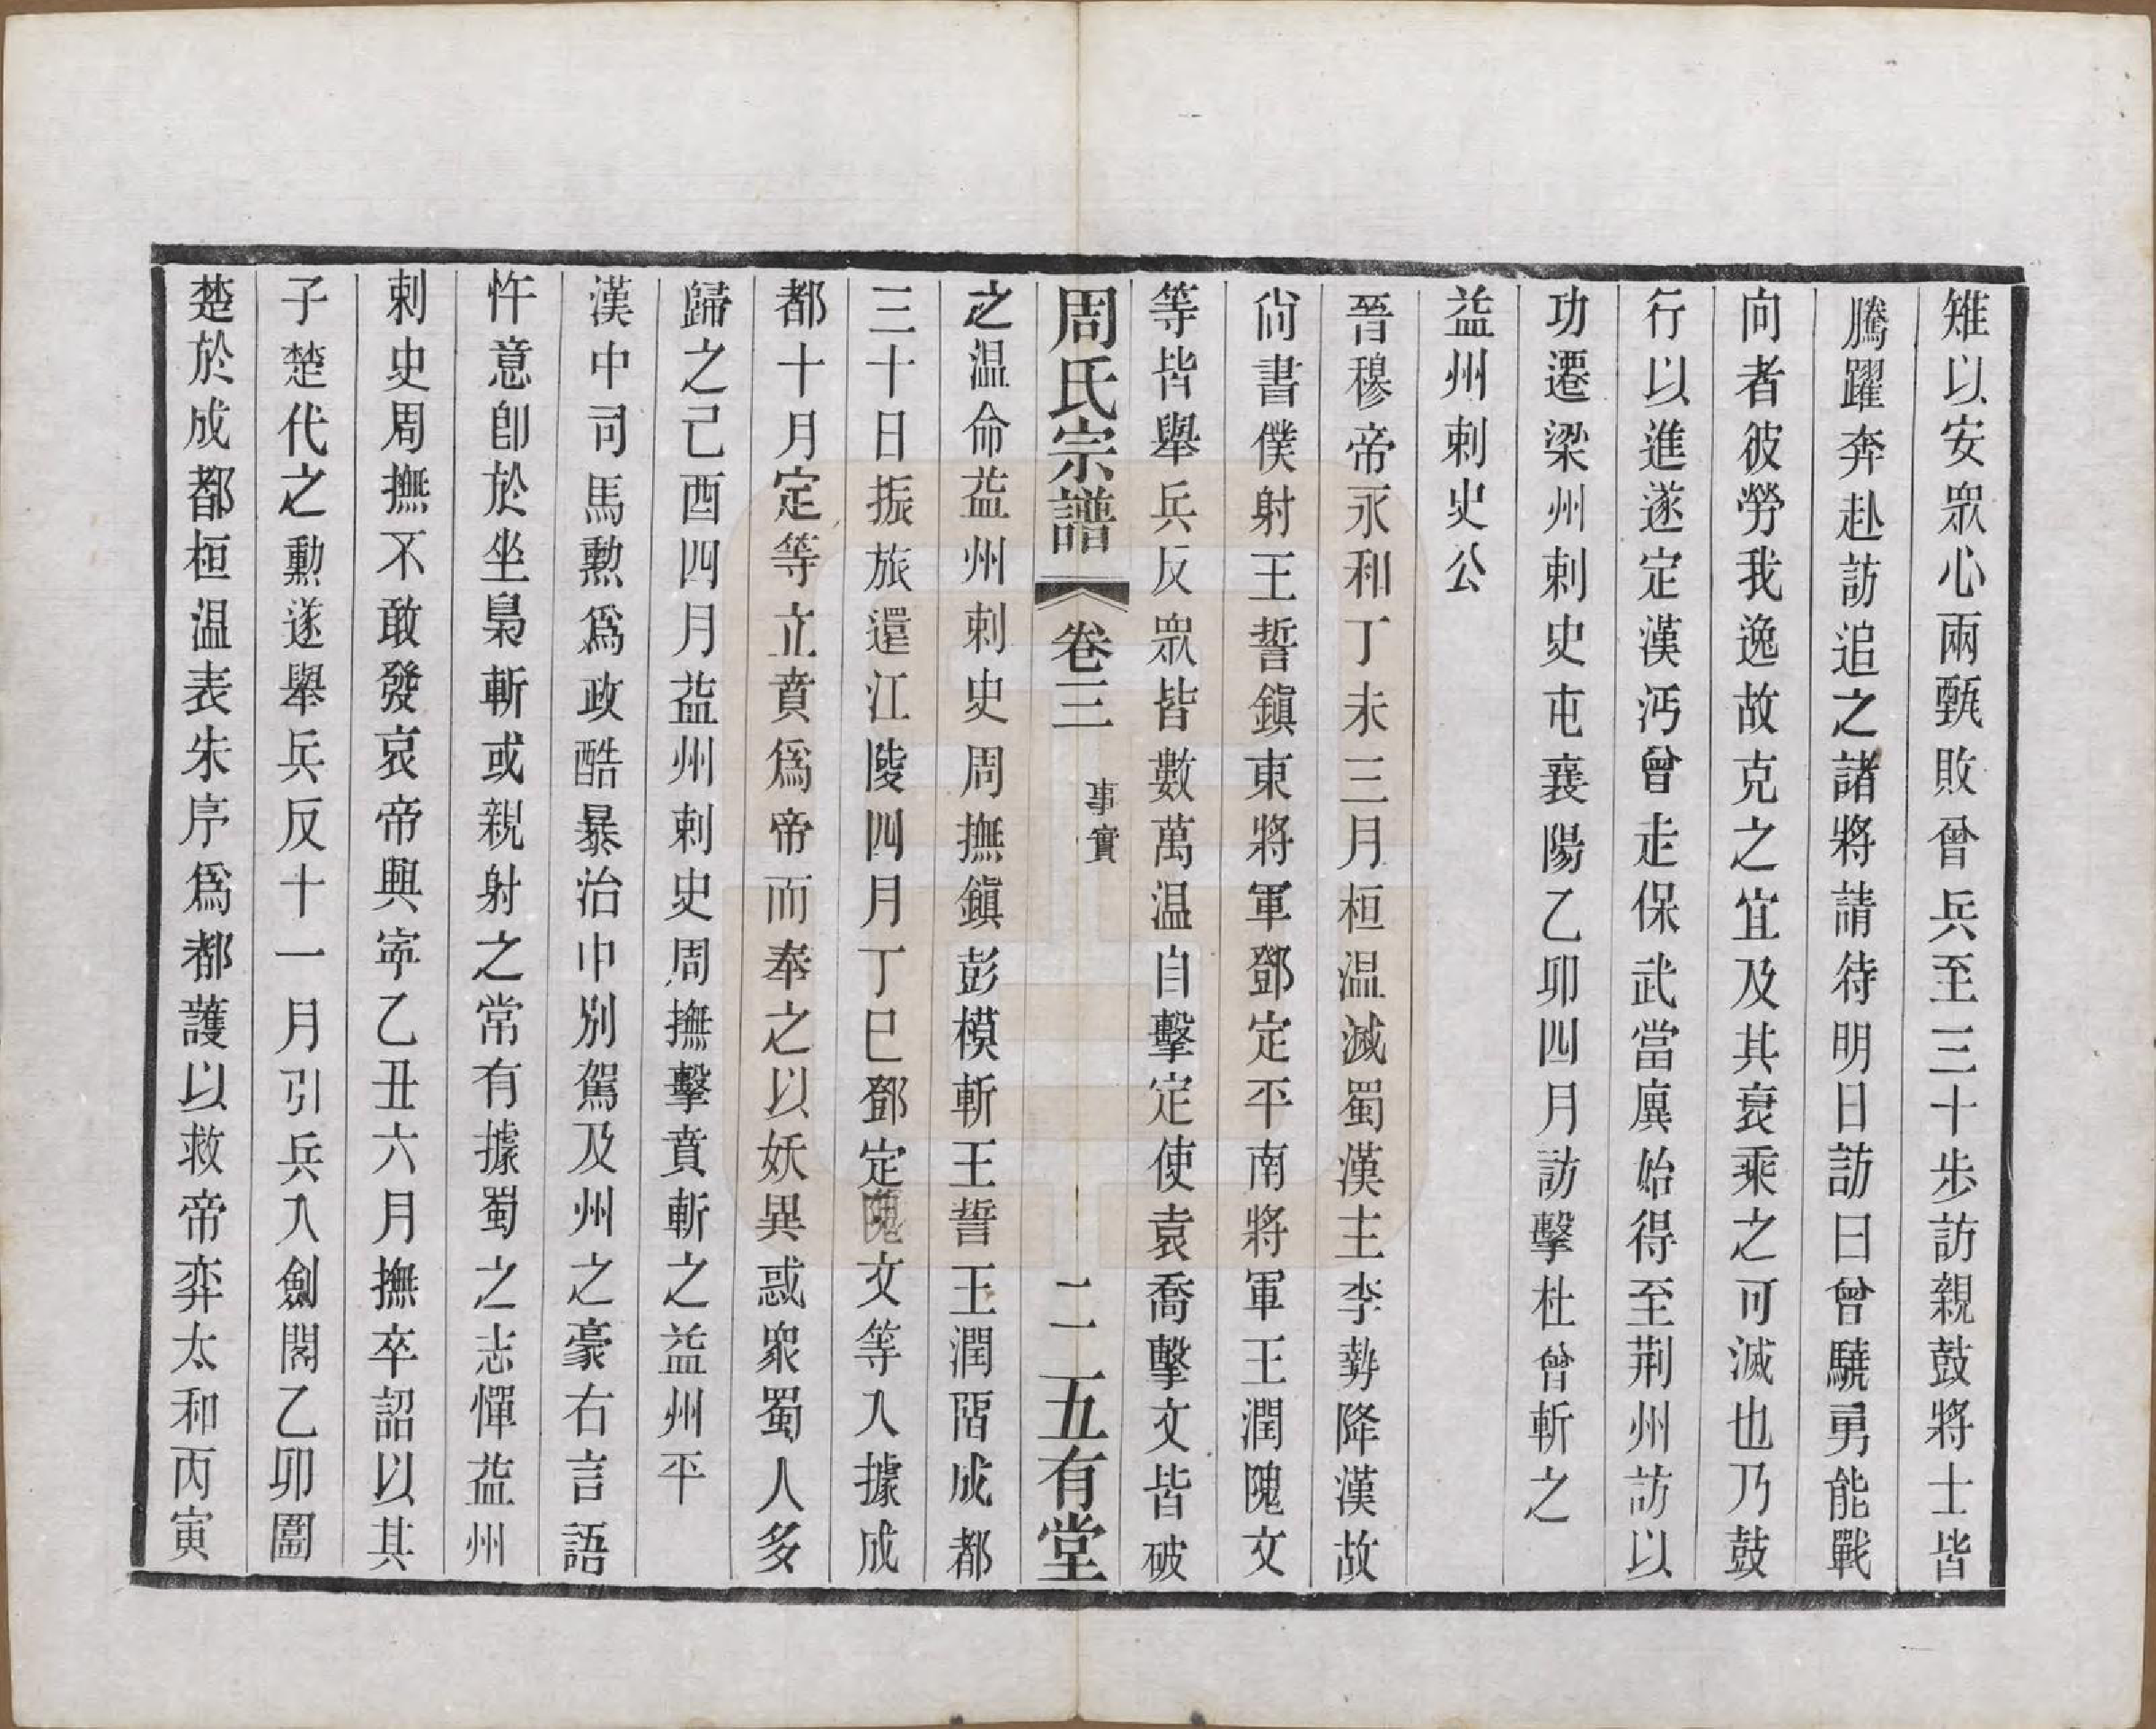 雉以安眾心兩甄敗曾兵至三十步訪親鼓將士皆
騰躍奔赴訪追之諸將請待明日訪曰曾驍勇能戰
向者彼勞我逸故克之宜及其衰乘之可滅也乃鼓
行以進遂定漢沔曾走保武當廙始得至荆州訪以
功遷梁州刺史屯襄陽乙卯四月訪擊杜曾斬之
益州刺史公
晉穆帝永和丁未三月桓温滅蜀漢主李勢降漢故
尙書僕射王誓鎭東將軍鄧定平南將軍王潤隗文
等皆舉兵反眾皆數萬温自擊定使袁喬擊文皆破
周氏宗譜 卷三 事實 二 五有堂
之温命益州刺史周撫鎭彭模斬王誓王潤畱成都
三十日振旅還江陵四月丁巳鄧定隗文等入據成
都十月定等立賁爲帝而奉之以妖異惑眾蜀人多
歸之己酉四月益州刺史周撫擊賁斬之益州平
漢中司馬勲爲政酷暴治中別駕及州之豪右言語
忤意卽於坐梟斬或親射之常有據蜀之志憚益州
刺史周撫不敢發哀帝興寧乙丑六月撫卒詔以其
子楚代之勲遂舉兵反十一月引兵入劍閣乙卯圍
楚於成都桓温表朱序爲都護以救帝弈太和丙寅